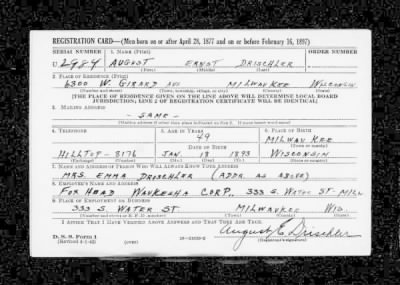 REGISTRATION CARD—(Men born on or after April 28, 1877 and on or before February 16, 1897)
SERIAL NUMBER 1. NAME (Print) ORDER NUMBER
U 2984 AUGUST ERNST DRISCHLER
(First) (Middle) (Last)
2. PLACE OF RESIDENCE (Print)
6300 W. GIRARD AVE MILWAUKEE WISCONSIN
(Number and street) (Town, township, village, or city) (County) (State)
[THE PLACE OF RESIDENCE GIVEN ON THE LINE ABOVE WILL DETERMINE LOCAL BOARD
JURISDICTION; LINE 2 OF REGISTRATION CERTIFICATE WILL BE IDENTICAL]
3. MAILING ADDRESS
- SAME -
[Mailing address if other than place indicated on line 2. If same insert word same]
4. TELEPHONE 5. AGE IN YEARS 6. PLACE OF BIRTH
49 MILWAUKEE
DATE OF BIRTH (Town or county)
HILLTOP-3176 JAN. 18 1893 WISCONSIN
(Exchange) (Number) (Mo.) (Day) (Yr.) (State or country)
7. NAME AND ADDRESS OF PERSON WHO WILL ALWAYS KNOW YOUR ADDRESS
MRS. EMMA DRISCHLER (ADDR. AS ABOVE)
8. EMPLOYER'S NAME AND ADDRESS
FOX HEAD WAUKESHA CORP., 333 S. WATER ST-MILW
9. PLACE OF EMPLOYMENT OR BUSINESS
333 S. WATER ST MILWAUKEE WIS.
(Number and street or R. F. D. number) (Town) (County) (State)
I AFFIRM THAT I HAVE VERIFIED ABOVE ANSWERS AND THAT THEY ARE TRUE.
D. S. S. Form 1
(Revised 4-1-42) (over) August E. Drischler
(Registrant's signature)